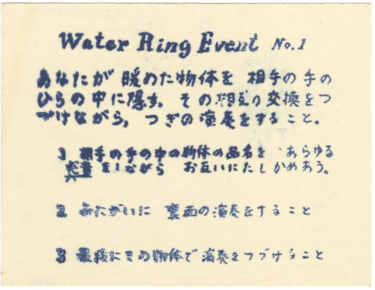 Water Ring Event No.1
あなたが 暖めた物体を 相手の手の
ひらの中に隠す。その相互の交換をつ
づけながら、つぎの演奏をすること。
1 相手の手の中の物体の品名を あらゆる
言いながら お互いにたしかめあう。
2 おたがいに 裏面の演奏をすること
3 最後にその物体で演奏をつづけること